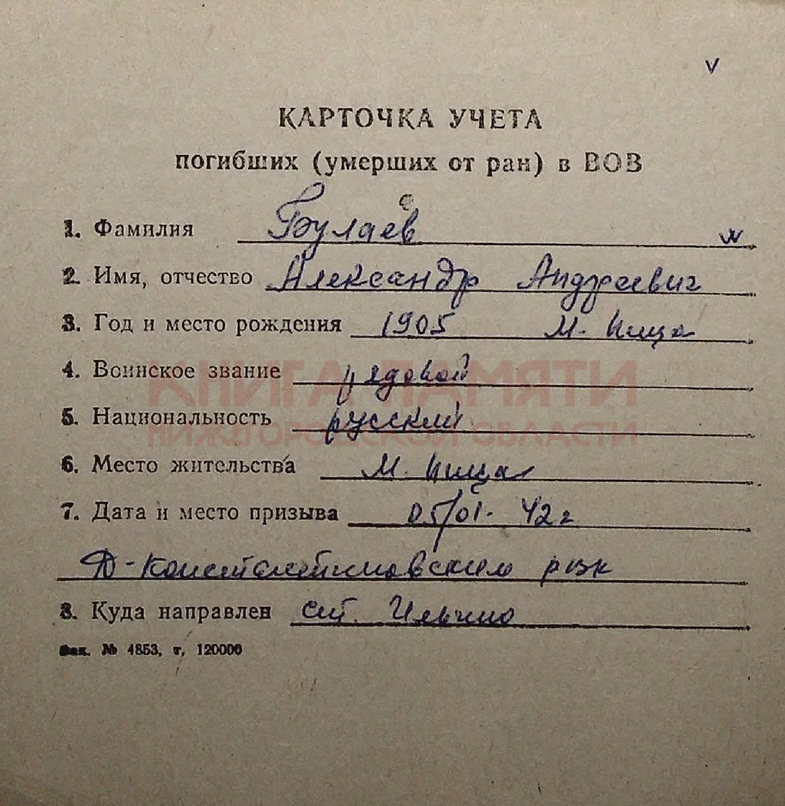 V
КАРТОЧКА УЧЕТА
погибших (умерших от ран) в ВОВ
1. Фамилия Булаев
2. Имя, отчество Александр Андреевич
3. Год и место рождения 1905 М. Пица
4. Воинское звание рядовой
КНИГА ПАМЯТИ
5. Национальность русский
НИЖЕГОРОДСКОЙ ОБЛАСТИ
6. Место жительства М. Пица
7. Дата и место призыва 05/01. 42 г
Д-Константиновским рвк
8. Куда направлен ст. Ильино
Зак. № 4853, т, 120000